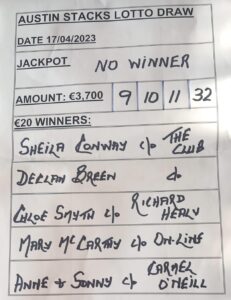 AUSTIN STACKS LOTTO DRAW
DATE 17/04/2023
JACKPOT NO WINNER
AMOUNT: €3,700 9 10 11 32
€20 WINNERS:
SHEILA CONWAY c/o THE CLUB
DECLAN BREEN c/o
CHLOE SMYTH c/o RICHARD HEALY
MARY McCARTHY c/o ON-LINE
ANNE & SONNY c/o CARMEL O'NEILL